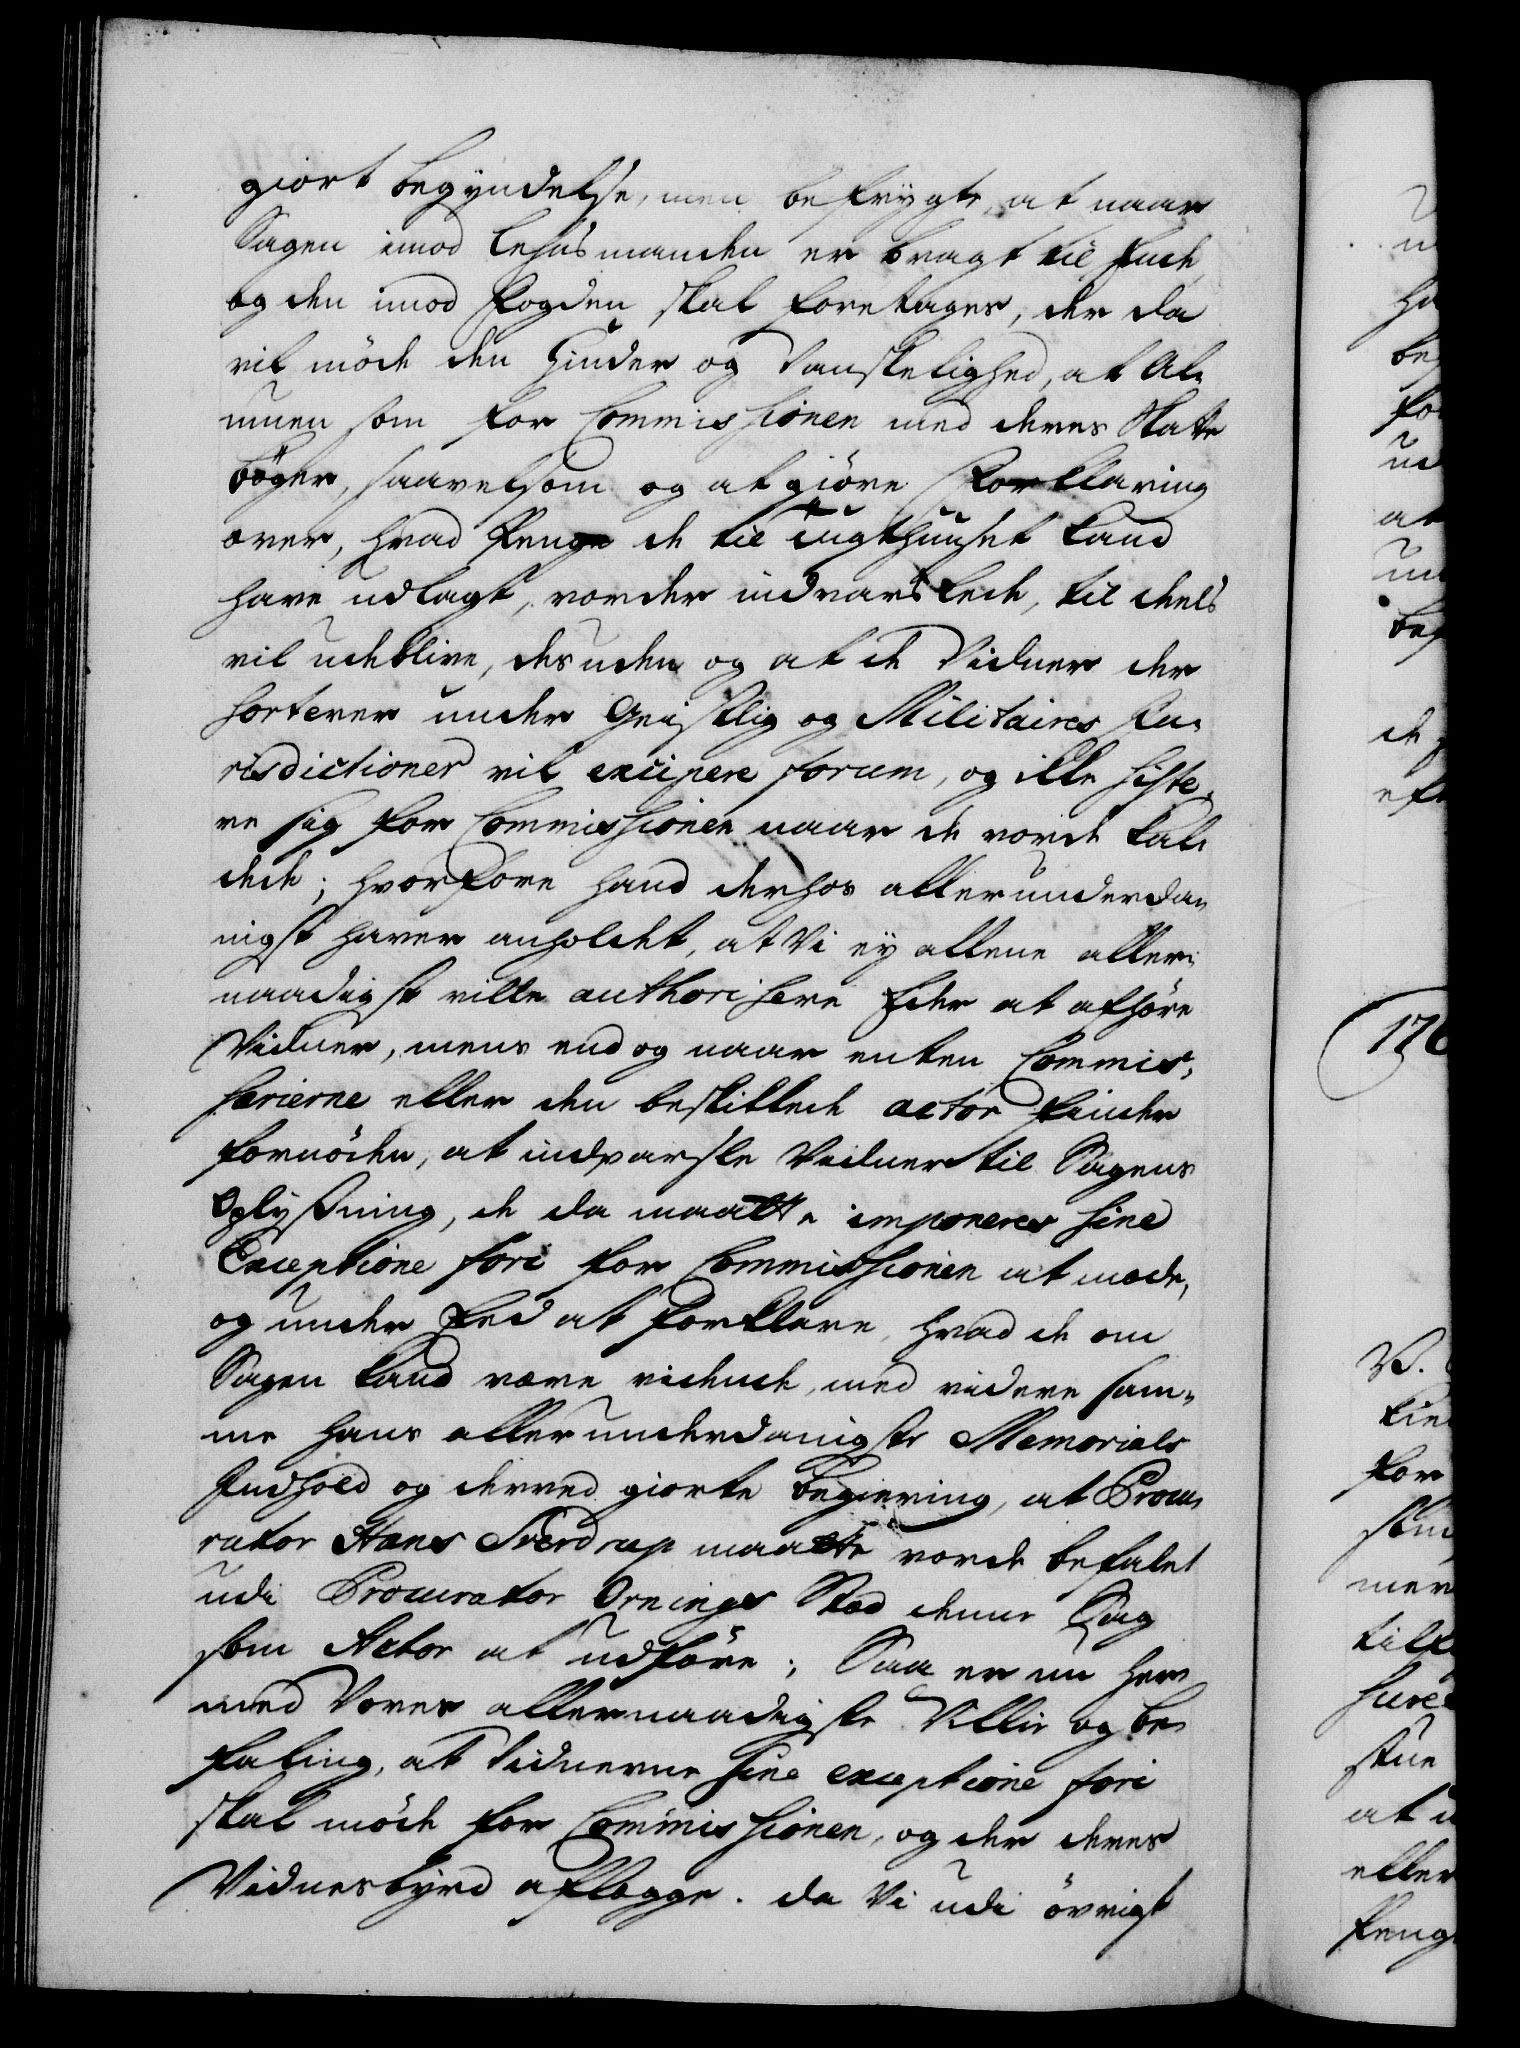 giort begyndelse, men befrygte, at naar
Sagen imod Lehnsmanden er bragt til Ende,
og den imod Fogden skal foretages, der da
vil möde den Hinder og Vanskelighed, at Al-
muen som for Commissionen med deres Skatte
böger, saavelsom og at giöre Forklaring
over, hvad Penge de til Tugthuuset kand
have udlagt, vorder indvarslede, til deels
vil udeblive, desuden og at de Vidner der
sorterer under Geistlig og Militaires Ju-
risdictioner vil excipere forum, og ikke siste-
re sig for Commissionen naar de vorde kal-
dede; hvorfore hand derhos allerunderda-
nigst haver anholdet, at Vi ey allene aller-
naadigst ville authorisere Eder at afhöre
Vidner, mens end og naar enten Commis-
sarierne eller den beskikkede actor finder
fornöden, at indvarsle Vidner til Sagens
Oplysning, de da maatte imponeres sine
Exceptione fori for Commissionen at möde,
og under Eed at forklare, hvad de om
Sagen kand være vidende, med videre sam-
me hans allerunderdanigste Memorials
Indhold og derved giorte begiering, at Procu-
rator Hans Sverdrup maatte vorde befalet
udi Procurator Ornings Sted denne Sag
som Actor at udföre; Saa er nu her-
med Vores allernaadigste Villie og be-
faling, at Vidnerne sine exceptione fori
skal möde for Commissionen, og der deres
Vidnesbyrd aflegge. da Vi udi övrigt